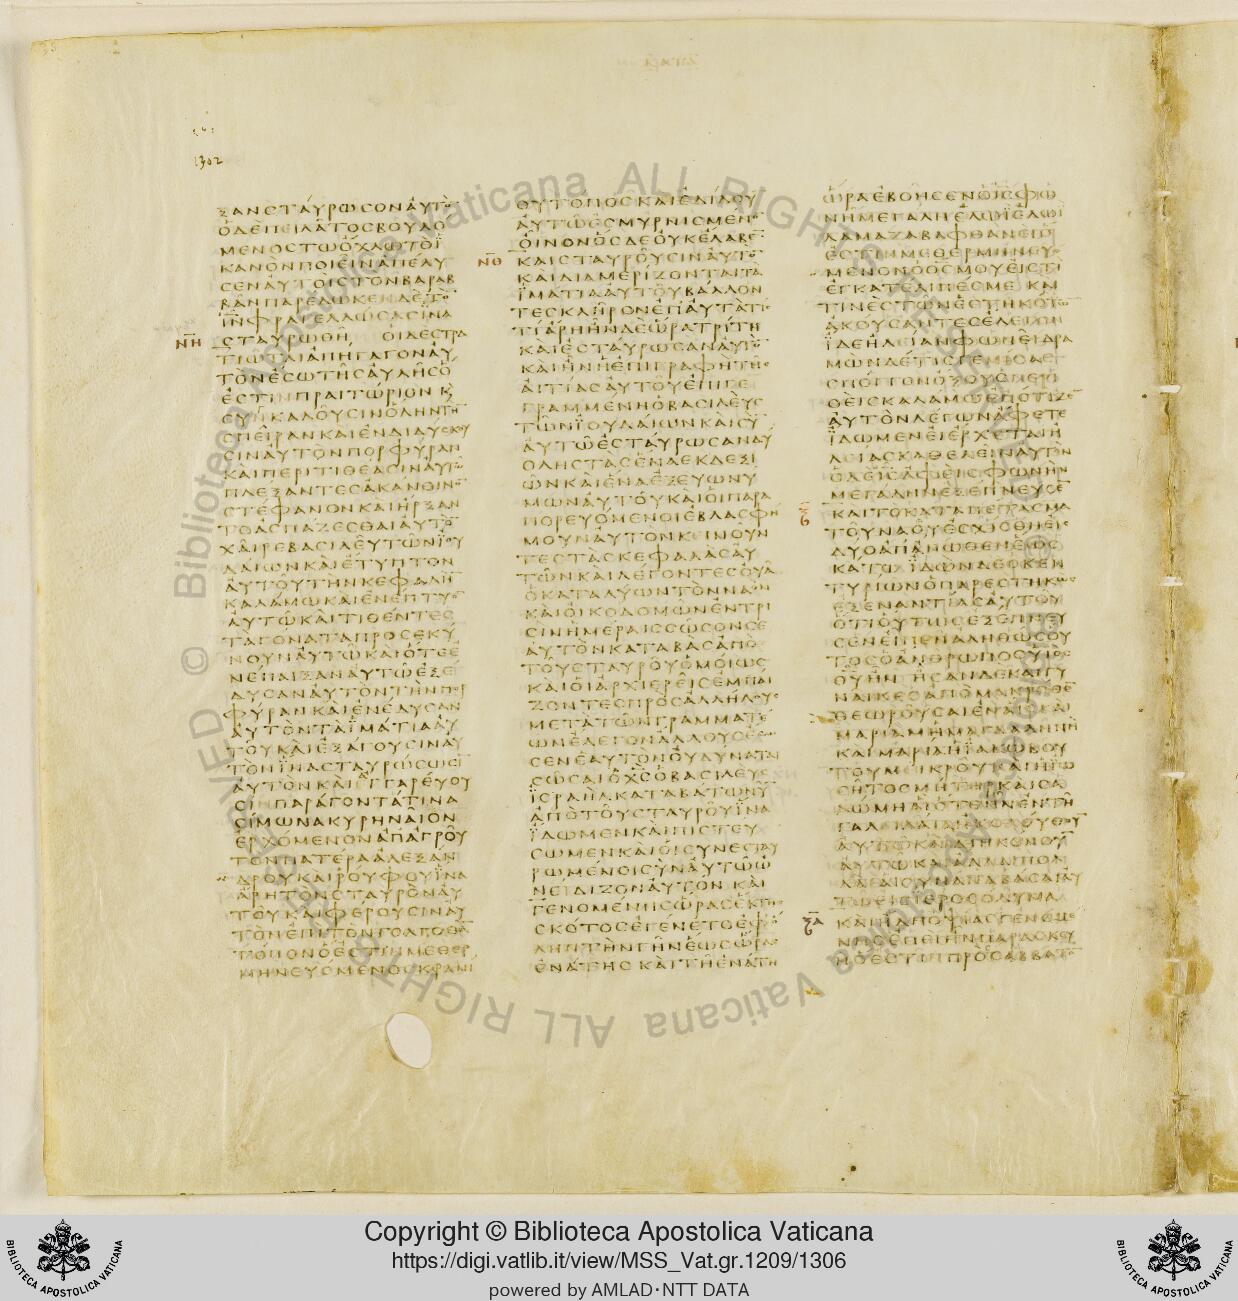 1302
ΞΑΝΣΤΑΥΡΩΣΟΝΑΥΤΟ
ΟΔΕΠΕΙΛΑΤΟΣΒΟΥΛΟ
ΜΕΝΟΣΤΩΟΧΛΩΤΟΪ
ΚΑΝΟΝΠΟΙΕΙΝΑΠΕΛΥ
ΣΕΝΑΥΤΟΙΣΤΟΝΒΑΡΑΒ
ΒΑΝΠΑΡΕΔΩΚΕΝΔΕΤΟ
ΙΝΦΡΑΓΕΛΛΩΣΑΣΙΝΑ
ΝΗ ΣΤΑΥΡΩΘΗ ΟΙΔΕΣΤΡΑ
ΤΙΩΤΑΙΑΠΗΓΑΓΟΝΑΥ
ΤΟΝΕΣΩΤΗΣΑΥΛΗΣΟ
ΕΣΤΙΝΠΡΑΙΤΩΡΙΟΝΚ
ΣΥΝΚΑΛΟΥΣΙΝΟΛΗΝΤΗ
ΣΠΕΙΡΑΝΚΑΙΕΝΔΙΔΥΣΚΟΥ
ΣΙΝΑΥΤΟΝΠΟΡΦΥΡΑΝ
ΚΑΙΠΕΡΙΤΙΘΕΑΣΙΝΑΥΤΩ
ΠΛΕΞΑΝΤΕΣΑΚΑΝΘΙΝΟ
ΣΤΕΦΑΝΟΝΚΑΙΗΡΞΑΝ
ΤΟΑΣΠΑΖΕΣΘΑΙΑΥΤΟ
ΧΑΙΡΕΒΑΣΙΛΕΥΤΩΝΪΟΥ
ΔΑΙΩΝΚΑΙΕΤΥΠΤΟΝ
ΑΥΤΟΥΤΗΝΚΕΦΑΛΗ
ΚΑΛΑΜΩΚΑΙΕΝΕΠΤΥΟ
ΑΥΤΩΚΑΙΤΙΘΕΝΤΕΣ
ΤΑΓΟΝΑΤΑΠΡΟΣΕΚΥ
ΝΟΥΝΑΥΤΩΚΑΙΟΤΕΕ
ΝΕΠΑΙΞΑΝΑΥΤΩΕΞΕ
ΔΥΣΑΝΑΥΤΟΝΤΗΝΠΟΡ
ΦΥΡΑΝΚΑΙΕΝΕΔΥΣΑΝ
ΑΥΤΟΝΤΑΪΜΑΤΙΑΑΥ
ΤΟΥΚΑΙΕΞΑΓΟΥΣΙΝΑΥ
ΤΟΝΪΝΑΣΤΑΥΡΩΣΩΣΙ
ΑΥΤΟΝΚΑΙΑΓΓΑΡΕΥΟΥ
ΣΙΝΠΑΡΑΓΟΝΤΑΤΙΝΑ
ΣΙΜΩΝΑΚΥΡΗΝΑΙΟΝ
ΕΡΧΟΜΕΝΟΝΑΠΑΓΡΟΥ
ΤΟΝΠΑΤΕΡΑΑΛΕΞΑΝ
ΔΡΟΥΚΑΙΡΟΥΦΟΥΪΝΑ
ΑΡΗΤΟΝΣΤΑΥΡΟΝΑΥ
ΤΟΥΚΑΙΦΕΡΟΥΣΙΝΑΥ
ΤΟΝΕΠΙΤΟΝΓΟΛΓΟΘΑ
ΤΟΠΟΝΟΕΣΤΙΝΜΕΘΕΡ
ΜΗΝΕΥΟΜΕΝΟΣΚΡΑΝΙ
ΟΥΤΟΠΟΣΚΑΙΕΔΙΔΟΥ
ΑΥΤΩΕΣΜΥΡΝΙΣΜΕΝΟ
ΟΙΝΟΝΟΣΔΕΟΥΚΕΛΑΒΕ
ΝΘ ΚΑΙΣΤΑΥΡΟΥΣΙΝΑΥΤΟ
ΚΑΙΔΙΑΜΕΡΙΖΟΝΤΑΙΤΑ
ΪΜΑΤΙΑΑΥΤΟΥΒΑΛΛΟΝ
ΤΕΣΚΛΗΡΟΝΕΠΑΥΤΑΤΙΣ
ΤΙΑΡΗΗΝΔΕΩΡΑΤΡΙΤΗ
ΚΑΙΕΣΤΑΥΡΩΣΑΝΑΥΤΟ
ΚΑΙΗΝΗΕΠΙΓΡΑΦΗΤΗΣ
ΑΙΤΙΑΣΑΥΤΟΥΕΠΙΓΕ
ΓΡΑΜΜΕΝΗΟΒΑΣΙΛΕΥΣ
ΤΩΝΪΟΥΔΑΙΩΝΚΑΙΣΥ
ΑΥΤΩΕΣΤΑΥΡΩΣΑΝΔΥ
ΟΛΗΣΤΑΣΕΝΑΕΚΔΕΞΙ
ΩΝΚΑΙΕΝΑΕΞΕΥΩΝΥ
ΜΩΝΑΥΤΟΥΚΑΙΟΙΠΑΡΑ
ΠΟΡΕΥΟΜΕΝΟΙΕΒΛΑΣΦΗ
ΜΟΥΝΑΥΤΟΝΚΕΙΝΟΥΝ
ΤΕΣΤΑΣΚΕΦΑΛΑΣΑΥ
ΤΩΝΚΑΙΛΕΓΟΝΤΕΣΟΥΑ
ΟΚΑΤΑΛΥΩΝΤΟΝΝΑΟΝ
ΚΑΙΟΙΚΟΔΟΜΩΝΕΝΤΡΙ
ΣΙΝΗΜΕΡΑΙΣΣΩΣΟΝΣΕ
ΑΥΤΟΝΚΑΤΑΒΑΣΑΠΟ
ΤΟΥΣΤΑΥΡΟΥΟΜΟΙΩΣ
ΚΑΙΟΙΑΡΧΙΕΡΕΙΣΕΜΠΑΙ
ΖΟΝΤΕΣΠΡΟΣΑΛΛΗΛΟΥΣ
ΜΕΤΑΤΩΝΓΡΑΜΜΑΤΕ
ΩΝΕΛΕΓΟΝΑΛΛΟΥΣΕΣΩ
ΣΕΝΕΑΥΤΟΝΟΥΔΥΝΑΤΑΙ
ΣΩΣΑΙΟΧΣΟΒΑΣΙΛΕΥΣ
ΪΣΡΑΗΛΚΑΤΑΒΑΤΩΝΥ
ΑΠΟΤΟΥΣΤΑΥΡΟΥΪΝΑ
ΪΔΩΜΕΝΚΑΙΠΙΣΤΕΥ
ΣΩΜΕΝΚΑΙΟΙΣΥΝΕΣΤΑΥ
ΡΩΜΕΝΟΙΣΥΝΑΥΤΩΩ
ΝΕΙΔΙΖΟΝΑΥΤΟΝΚΑΙ
ΓΕΝΟΜΕΝΗΣΩΡΑΣΕΚΤΗΣ
ΣΚΟΤΟΣΕΓΕΝΕΤΟΕΦΟ
ΛΗΝΤΗΝΓΗΝΕΩΣΩΡΑΣ
ΕΝΑΤΗΣΚΑΙΤΗΕΝΑΤΗ
ΩΡΑΕΒΟΗΣΕΝΟΙΣΦΩ
ΝΗΜΕΓΑΛΗΕΛΩΪΕΛΩΪ
ΛΑΜΑΖΑΒΑΦΘΑΝΕΙΟ
ΕΣΤΙΝΜΕΘΕΡΜΗΝΕΥΟ
ΜΕΝΟΝΟΘΣΜΟΥΕΙΣΤΙ
ΕΓΚΑΤΕΛΙΠΕΣΜΕΚΑΙ
ΤΙΝΕΣΤΩΝΕΣΤΗΚΟΤΩ
ΑΚΟΥΣΑΝΤΕΣΕΛΕΓΟΝ
ΪΔΕΗΛΕΙΑΝΦΩΝΕΙΔΡΑ
ΜΩΝΔΕΤΙΣΓΕΜΙΣΑΣ
ΣΠΟΓΓΟΝΟΞΟΥΣΠΕΡΙ
ΘΕΙΣΚΑΛΑΜΩΕΠΟΤΙΖΕ
ΑΥΤΟΝΛΕΓΩΝΑΦΕΤΕ
ΪΔΩΜΕΝΕΙΕΡΧΕΤΑΙΗ
ΛΕΙΑΣΚΑΘΕΛΕΙΝΑΥΤΟΝ
ΟΔΕΙΣΑΦΕΙΣΦΩΝΗΝ
ΜΕΓΑΛΗΝΕΞΕΠΝΕΥΣΕ
Ξ ΚΑΙΤΟΚΑΤΑΠΕΤΑΣΜΑ
ΤΟΥΝΑΟΥΕΣΧΙΣΘΗΕΙΣ
ΔΥΟΑΠΑΝΩΘΕΝΕΩΣ
ΚΑΤΩΪΔΩΝΔΕΟΚΕΝ
ΤΥΡΙΩΝΟΠΑΡΕΣΤΗΚΩΣ
ΕΞΕΝΑΝΤΙΑΣΑΥΤΟΥ
ΟΤΙΟΥΤΩΣΕΞΕΠΝΕΥ
ΣΕΝΕΙΠΕΝΑΛΗΘΩΣΟΥ
ΤΟΣΟΑΝΘΡΩΠΟΣΥΙΟΣ
ΘΥΗΝ ΗΣΑΝΔΕΚΑΙΓΥ
ΝΑΙΚΕΣΑΠΟΜΑΚΡΟΘΕ
ΘΕΩΡΟΥΣΑΙΕΝΑΙΣΚΑΙ
ΜΑΡΙΑΜΗΜΑΓΔΑΛΗΝΗ
ΚΑΙΜΑΡΙΑΗΪΑΚΩΒΟΥ
ΤΟΥΜΕΙΚΡΟΥΚΑΙΗΪΩ
ΣΗΤΟΣΜΗΤΗΡΚΑΙΣΑ
ΛΩΜΗΑΙΟΤΕΗΝΕΝΤΗ
ΓΑΛΕΙΛΑΙΑΗΚΟΛΟΥΘΟΥ
ΑΥΤΩΚΑΙΔΙΗΚΟΝΟΥ
ΑΥΤΩΚΑΙΑΛΛΑΙΠΟΛ
ΛΑΙΑΙΣΥΝΑΝΑΒΑΣΑΙΑΥ
ΤΩΕΙΣΙΕΡΟΣΟΛΥΜΑ
ΞΑ ΚΑΙΗΔΗΟΨΙΑΣΓΕΝΟΜΕ
ΝΗΣΕΠΕΙΗΝΠΑΡΑΣΚΕΥ
ΗΟΕΣΤΙΝΠΡΟΣΑΒΒΑΤΟ
© Biblioteca Apostolica Vaticana ALL RIGHTS RESERVED
Copyright © Biblioteca Apostolica Vaticana
https://digi.vatlib.it/view/MSS_Vat.gr.1209/1306
powered by AMLAD·NTT DATA
BIBLIOTECA APOSTOLICA VATICANA
BIBLIOTECA APOSTOLICA VATICANA